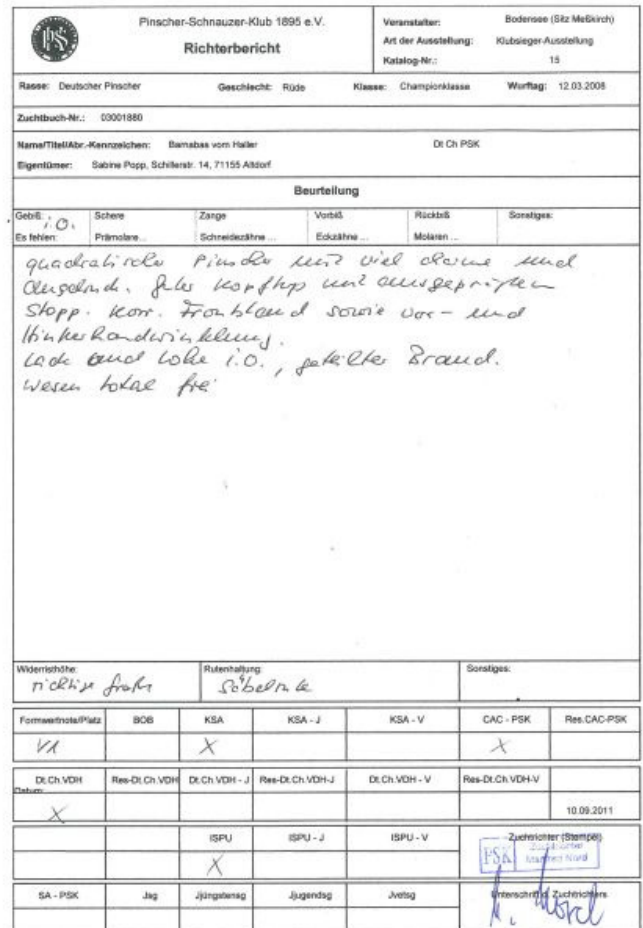 Pinscher-Schnauzer-Klub 1895 e.V.
Richterbericht
Veranstalter: Bodensee (Sitz Meßkirch)
Art der Ausstellung: Klubsieger-Ausstellung
Katalog-Nr.: 15
Rasse: Deutscher Pinscher Geschlecht: Rüde Klasse: Championklasse Wurftag: 12.03.2008
Zuchtbuch-Nr.: 03001880
Name/Titel/Abr.-Kennzeichen: Barnabas vom Haller Dt Ch PSK
Eigentümer: Sabine Popp, Schillerstr. 14, 71155 Altdorf
Beurteilung
Gebiß: i.O. Schere Zange Vorbiß Rückbiß Sonstiges:
Es fehlen: Prämolare ... Schneidezähne ... Eckzähne ... Molaren ...
quadratischer Pinscher mit viel und
Ausdruck. Guter Kopftyp mit ausgeprägtem
Stopp. Korr. Frontstand sowie Vor- und
Hinterhandwinkelung.
Lack und Lohe i.O., geteilter Brand.
Wesen total frei
Widerristhöhe: richtige Größe Rutenhaltung: Säbelrute Sonstiges:
Formwertnote/Platz BOB KSA KSA - J KSA - V CAC - PSK Res.CAC-PSK
V1 X X
Dt.Ch.VDH Res-Dt.Ch.VDH Dt.Ch.VDH - J Res-Dt.Ch.VDH-J Dt.Ch.VDH - V Res-Dt.Ch.VDH-V
Datum:
X 10.09.2011
ISPU ISPU - J ISPU - V Zuchtrichter (Stempel)
X PSK Zuchtrichter
Manfred Nord
SA - PSK Jsg Jjüngstensg Jjugendsg Jvetsg Unterschrift d. Zuchtrichters